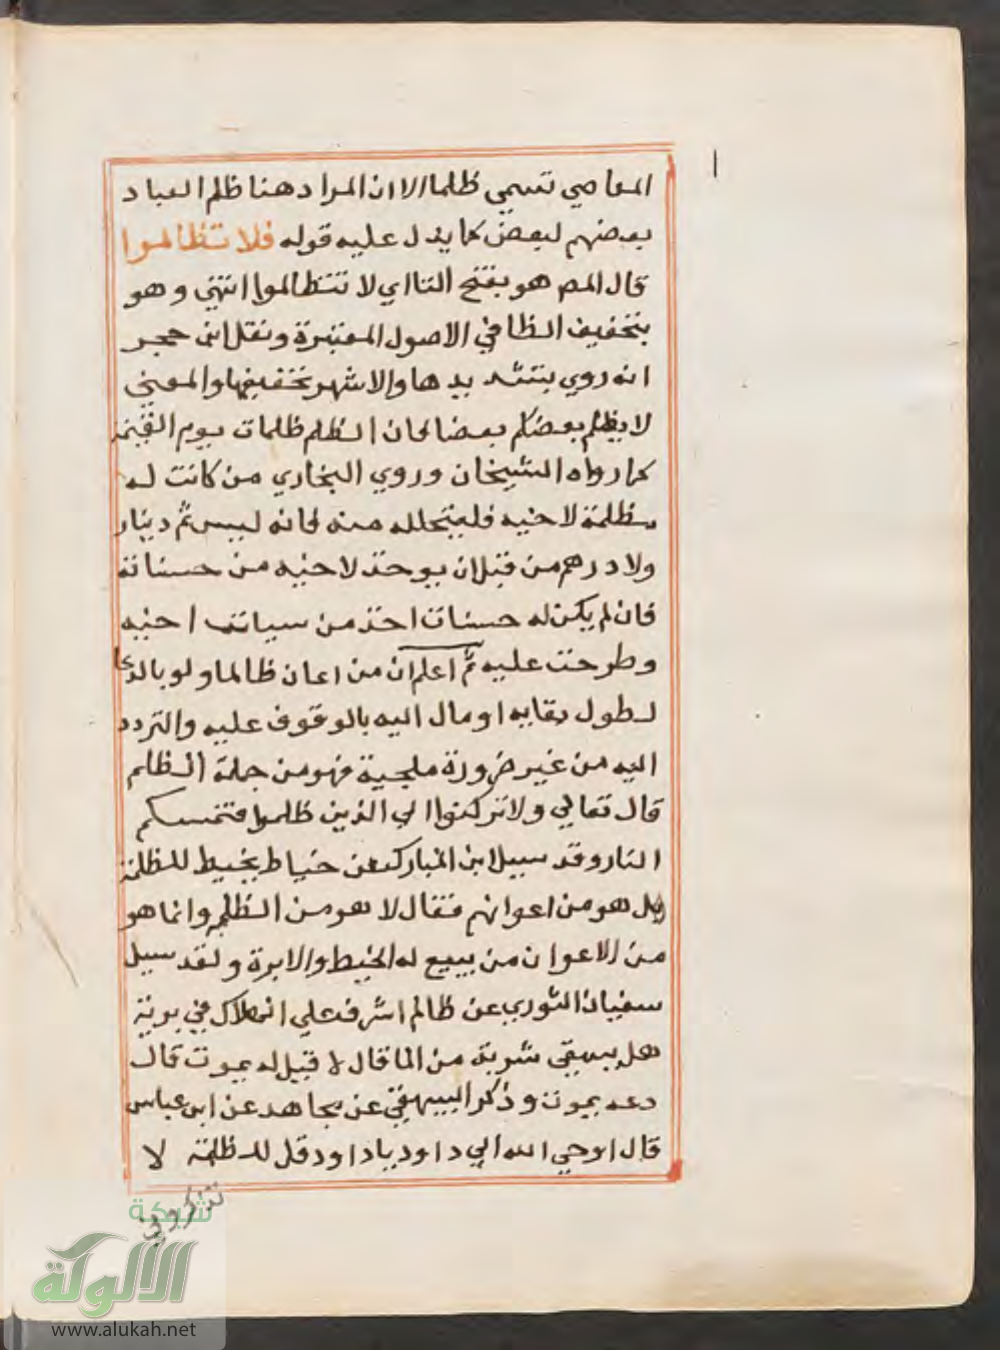 المعاصي تسمي ظلما الا ان المراد هنا ظلم العباد
بعضهم لبعض كما يدل عليه قوله فلا تظالموا
قال المص هو بفتح التا اي لا تتظالموا انتهي وهو
بتخفيف الظا في الاصول المعتبرة ونقل ابن حجر
انه روي بتشديدها والاشهر تخفيفها والمعني
لا يظلم بعضكم بعضا فان الظلم ظلمات يوم القيمة
كما رواه الشيخان وروي البخاري من كانت له
مظلمة لاخيه فليتحلله منه فانه ليس ثم دينار
ولا درهم من قبل ان يوخذ لاخيه من حسناته
فان لم يكن له حسنات اخذ من سيات اخيه
وطرحت عليه ثم اعلم ان من اعان ظالما ولو بالدعا
لطول بقايه او مال اليه بالوقوف عليه والتردد
اليه من غير ضرورة ملجية فهو من جملة الظلم
قال تعالي ولا تركنوا الي الذين ظلموا فتمسكم
النار وقد سيل ابن المبارك عن خياط يخيط للظلمة
هل هو من اعوانهم فقال لا هو من الظلمة وانما هو
من الاعوان من يبيع له الخيط والابرة ولقد سيل
سفيان الثوري عن ظالم اشرف علي الهلاك في برية
هل يسقي شربة من الما قال لا قيل له يموت قال
دعه يموت وذكر البيهقي عن مجاهد عن ابن عباس
قال اوحي الله الي داود يا داود قل للظلمة لا
تذكروني
شبكة
الألوكة
www.alukah.net